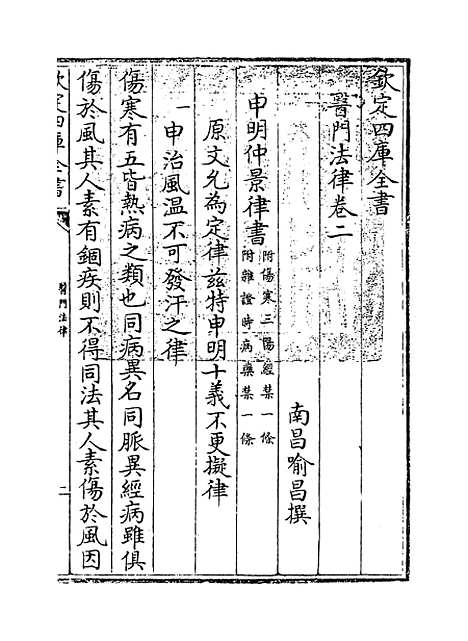 欽定四庫全書
醫門法律卷二
南昌喻昌撰
申明仲景律書
附傷寒三陽經禁一條
附雜證時病藥禁一條
原文允為定律兹特申明十義不更擬律
一申治風温不可發汗之律
傷寒有五皆熱病之類也同病異名同脈異經病雖俱
傷於風其人素有錮疾則不得同法其人素傷於風因
欽定四庫全書
醫門法律
二